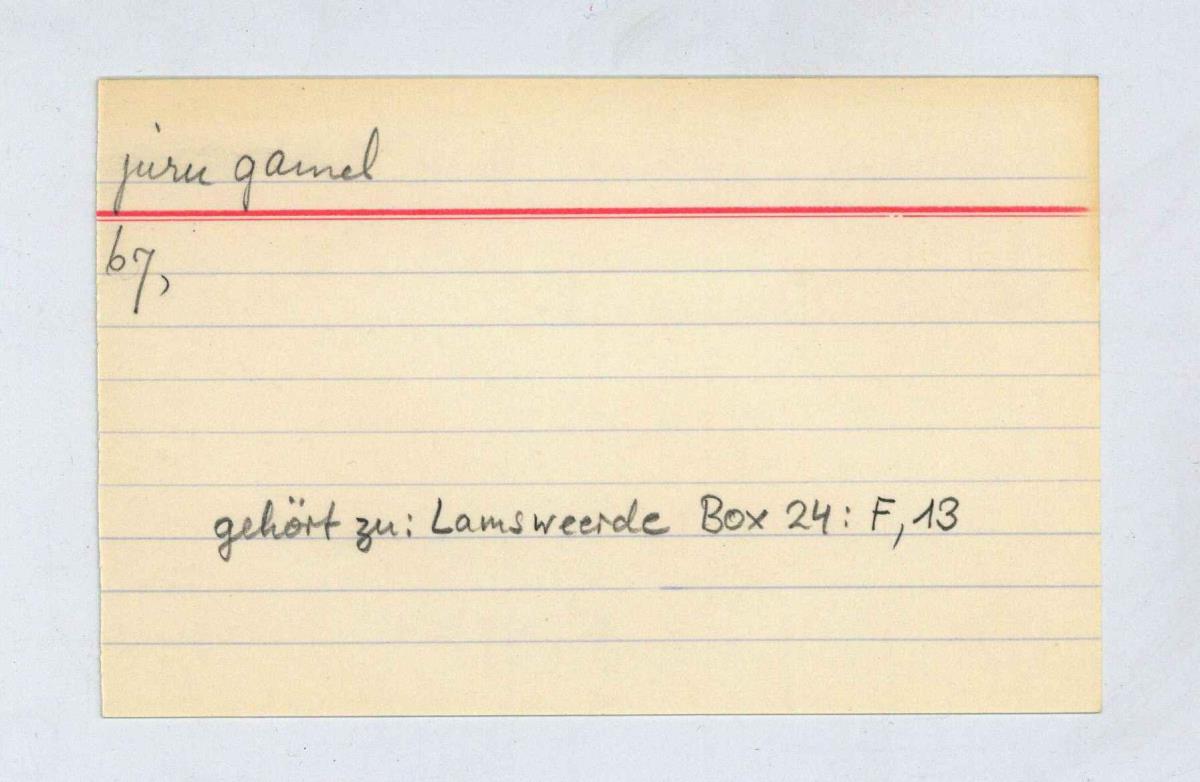 juru gamel
67,
gehört zu: Lamsweerde Box 24: F, 13